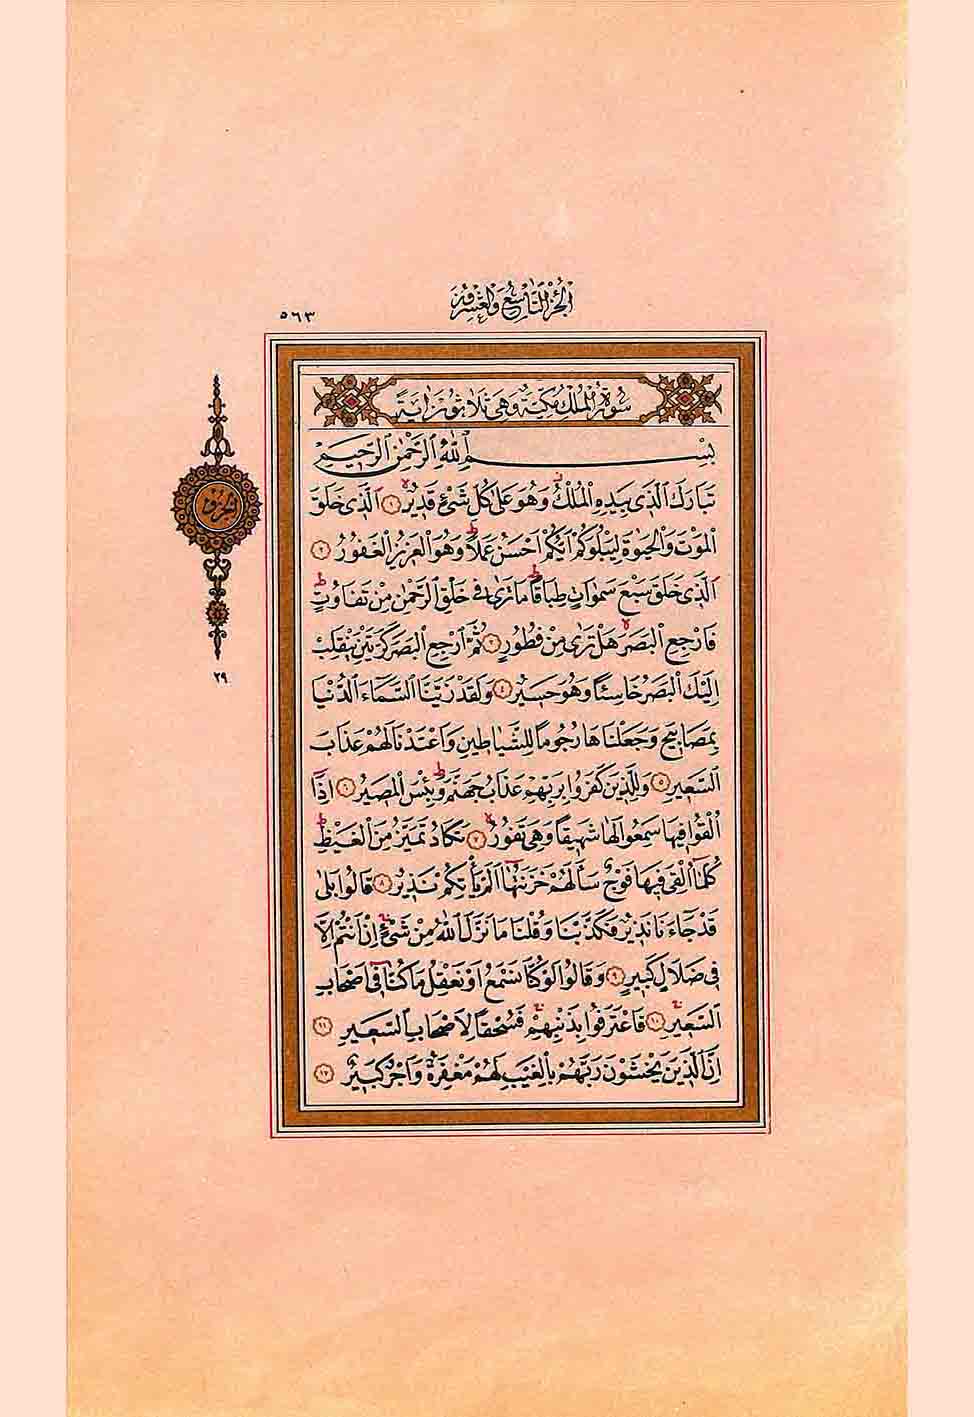 الجزء التاسع والعشرون
٥٦٣
سُورَةُ الْمُلْكِ مَكِّيَّةٌ وَهِيَ ثَلَاثُونَ اٰيَةً
بِسْمِ اللّٰهِ الرَّحْمٰنِ الرَّحِيمِ
تَبَارَكَ الَّذِي بِيَدِهِ الْمُلْكُ وَهُوَ عَلٰى كُلِّ شَيْءٍ قَدِيرٌ ١ اَلَّذِي خَلَقَ
الْمَوْتَ وَالْحَيٰوةَ لِيَبْلُوَكُمْ اَيُّكُمْ اَحْسَنُ عَمَلًا وَهُوَ الْعَزِيزُ الْغَفُورُ ٢
اَلَّذِي خَلَقَ سَبْعَ سَمٰوَاتٍ طِبَاقًا مَا تَرٰى فِي خَلْقِ الرَّحْمٰنِ مِنْ تَفَاوُتٍ
فَارْجِعِ الْبَصَرَ هَلْ تَرٰى مِنْ فُطُورٍ ٣ ثُمَّ ارْجِعِ الْبَصَرَ كَرَّتَيْنِ يَنْقَلِبْ
اِلَيْكَ الْبَصَرُ خَاسِئًا وَهُوَ حَسِيرٌ ٤ وَلَقَدْ زَيَّنَّا السَّمَاءَ الدُّنْيَا
بِمَصَابِيحَ وَجَعَلْنَاهَا رُجُومًا لِلشَّيَاطِينِ وَاَعْتَدْنَا لَهُمْ عَذَابَ
السَّعِيرِ ٥ وَلِلَّذِينَ كَفَرُوا بِرَبِّهِمْ عَذَابُ جَهَنَّمَ وَبِئْسَ الْمَصِيرُ ٦ اِذَا
اُلْقُوا فِيهَا سَمِعُوا لَهَا شَهِيقًا وَهِيَ تَفُورُ ٧ تَكَادُ تَمَيَّزُ مِنَ الْغَيْظِ
كُلَّمَا اُلْقِيَ فِيهَا فَوْجٌ سَاَلَهُمْ خَزَنَتُهَا اَلَمْ يَأْتِكُمْ نَذِيرٌ ٨ قَالُوا بَلٰى
قَدْ جَاءَنَا نَذِيرٌ فَكَذَّبْنَا وَقُلْنَا مَا نَزَّلَ اللّٰهُ مِنْ شَيْءٍ اِنْ اَنْتُمْ اِلَّا
فِي ضَلَالٍ كَبِيرٍ ٩ وَقَالُوا لَوْ كُنَّا نَسْمَعُ اَوْ نَعْقِلُ مَا كُنَّا فِي اَصْحَابِ
السَّعِيرِ ١٠ فَاعْتَرَفُوا بِذَنْبِهِمْ فَسُحْقًا لِاَصْحَابِ السَّعِيرِ ١١
اِنَّ الَّذِينَ يَخْشَوْنَ رَبَّهُمْ بِالْغَيْبِ لَهُمْ مَغْفِرَةٌ وَاَجْرٌ كَبِيرٌ ١٢
الجزء
٢٩